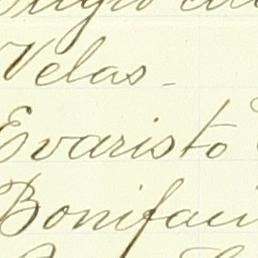 Velas.
Evaristo
Bonifaci